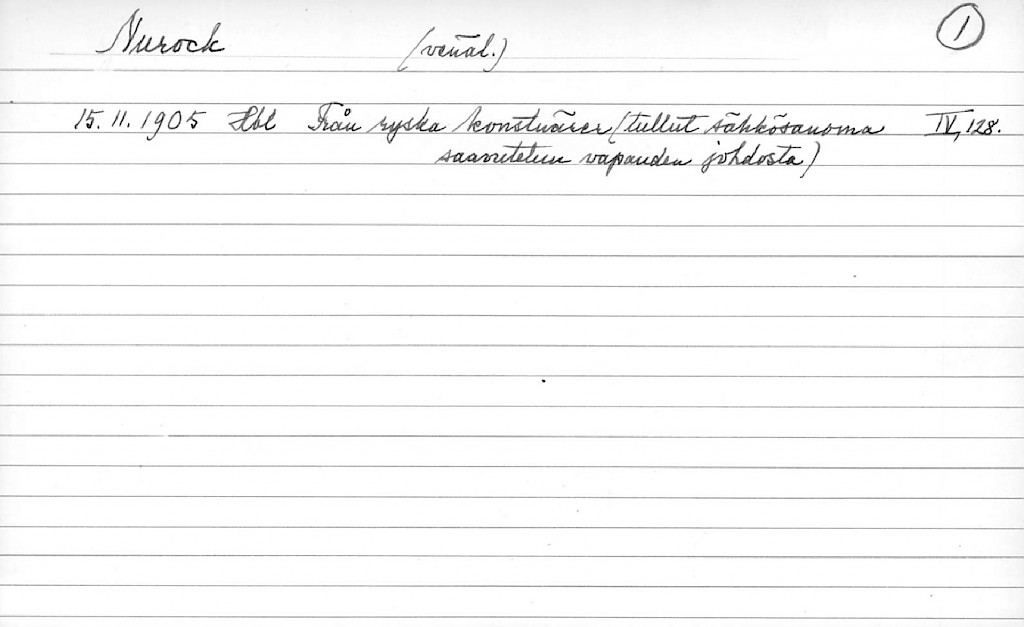 Nurock (venäl.) 1
15. 11. 1905 Hbl Från ryska konstnärer (tullut sähkösanoma IV, 128.
saavutetun vapauden johdosta)